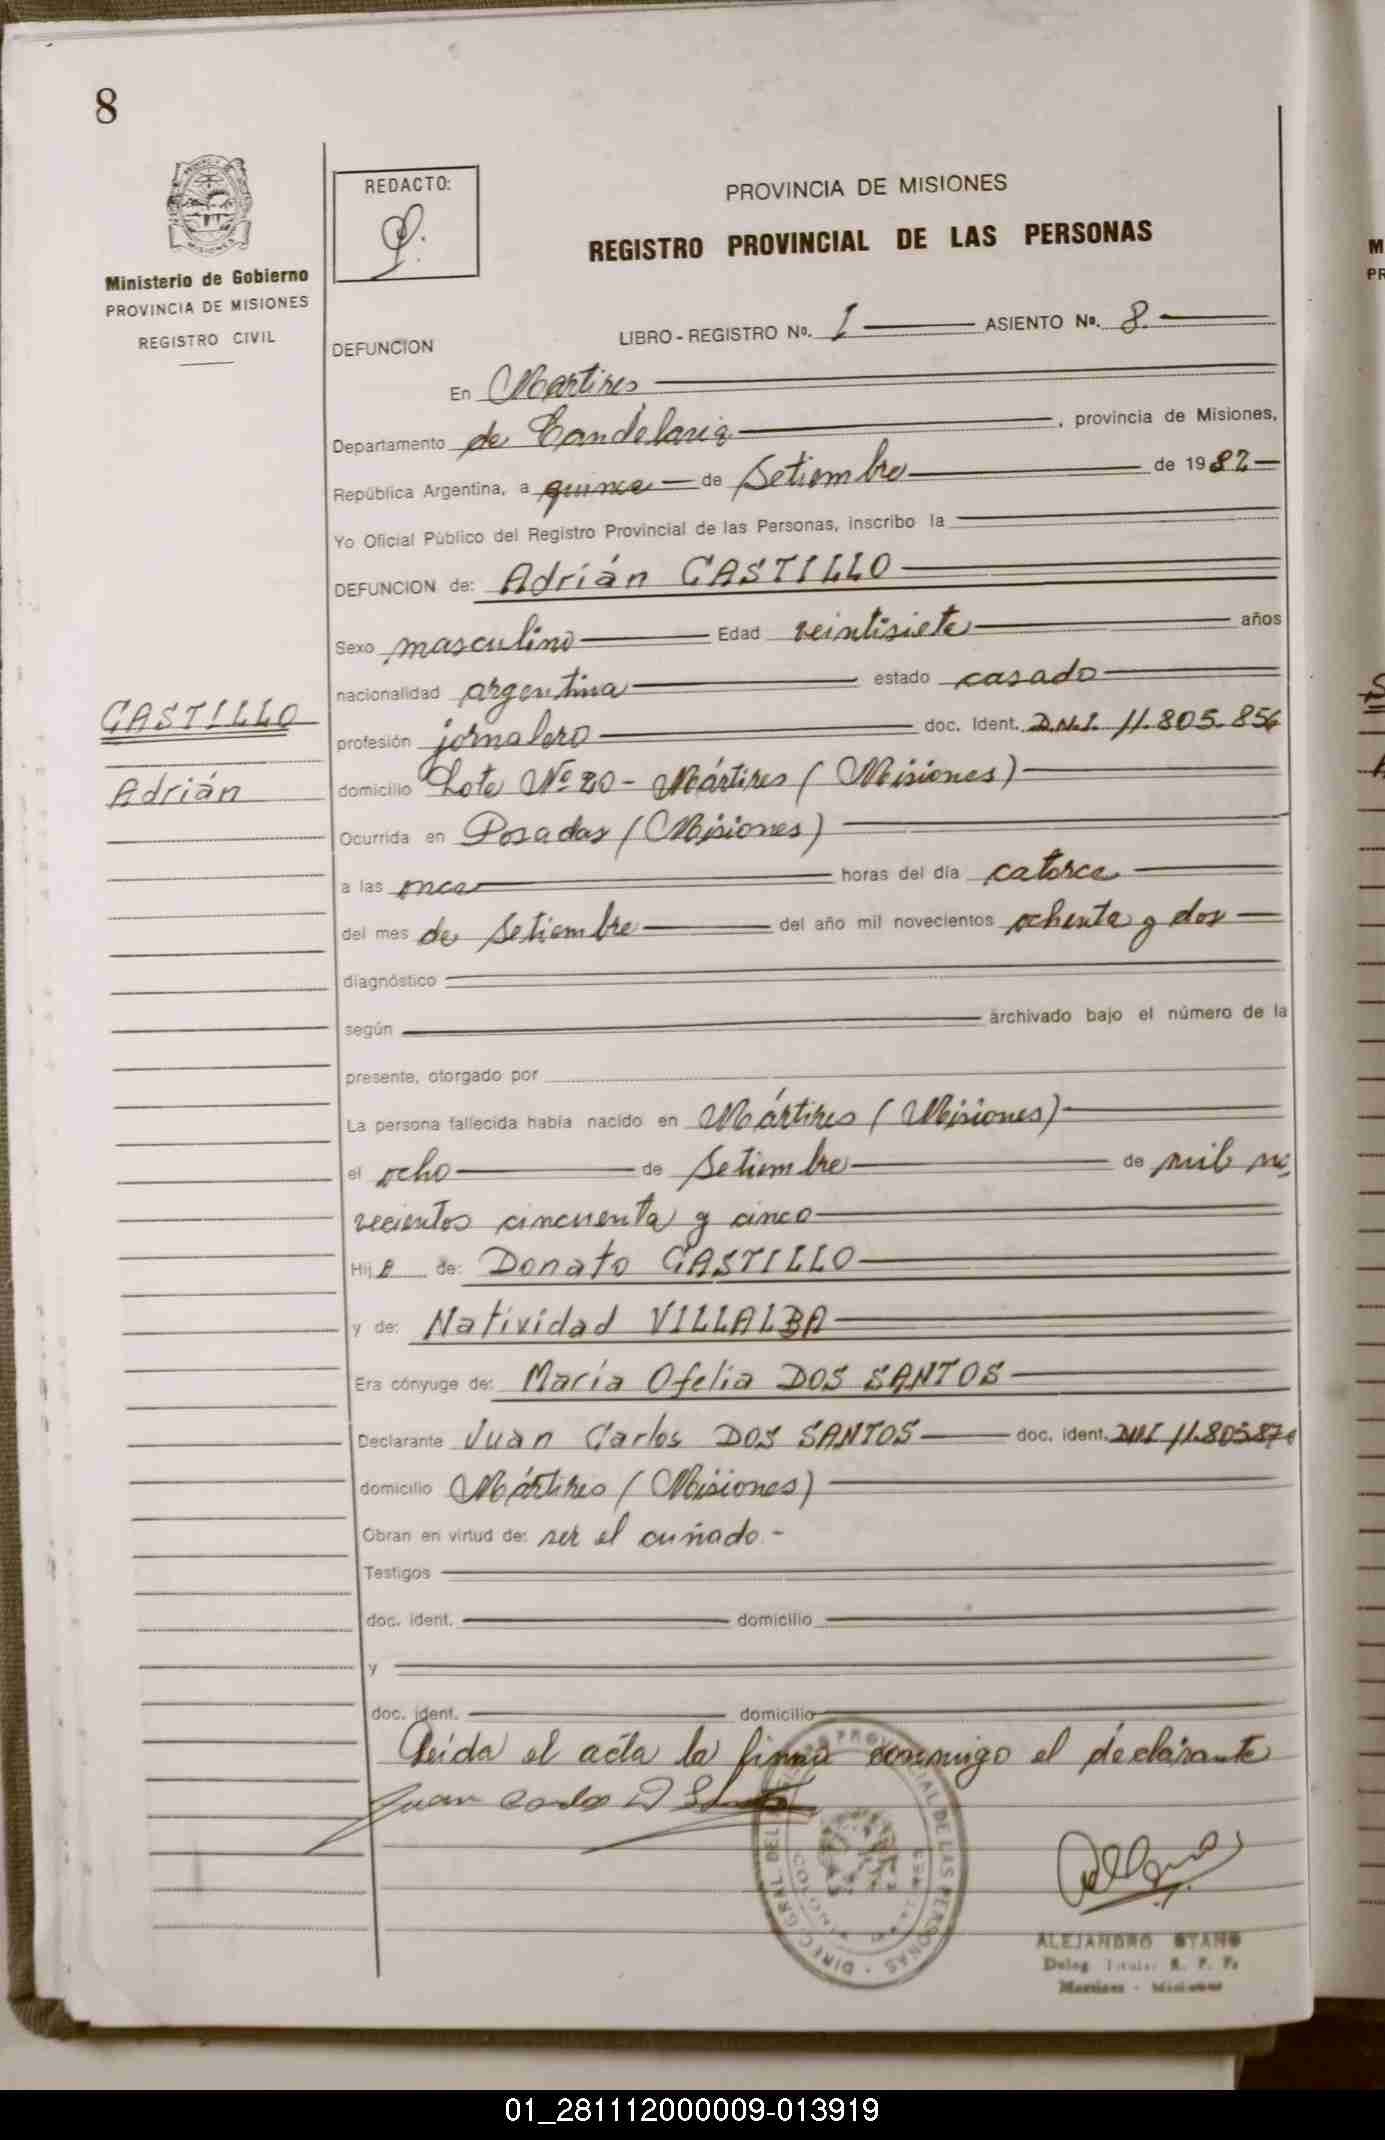 8
Ministerio de Gobierno
PROVINCIA DE MISIONES
REGISTRO CIVIL
REDACTO:
PROVINCIA DE MISIONES
REGISTRO PROVINCIAL DE LAS PERSONAS
LIBRO - REGISTRO Nº. I ASIENTO Nº. 8.
DEFUNCION
En Martires
Departamento de Candelaria, provincia de Misiones,
República Argentina, a quince de Setiembre de 1982
Yo Oficial Público del Registro Provincial de las Personas, inscribo la
DEFUNCION de: Adrián CASTILLO
Sexo masculino Edad veintisiete años
nacionalidad argentina estado casado
CASTILLO
Adrián
profesión jornalero doc. Ident. D.N.I. 11.805.856
domicilio Lote Nº 20 - Mártires (Misiones)
Ocurrida en Posadas (Misiones)
a las once horas del día catorce
del mes de Setiembre del año mil novecientos ochenta y dos
diagnóstico
según archivado bajo el número de la
presente, otorgado por
La persona fallecida había nacido en Mártires (Misiones)
el ocho de Setiembre de mil no
vecientos cincuenta y cinco
Hijo de: Donato CASTILLO
y de: Natividad VILLALBA
Era cónyuge de: María Ofelia DOS SANTOS
Declarante Juan Carlos DOS SANTOS doc. ident. DNI
domicilio Mártires (Misiones)
Obran en virtud de: ser el cuñado.-
Testigos
doc. ident. domicilio
y
doc. ident. domicilio
Leída el acta la firma conmigo el declarante
Juan Carlos D Santos
DIREC. GRAL. DEL REGISTRO PROVINCIAL DE LAS PERSONAS
ALEJANDRO
Deleg. Titular R. P. P.
Martires - Misiones
01_281112000009-013919